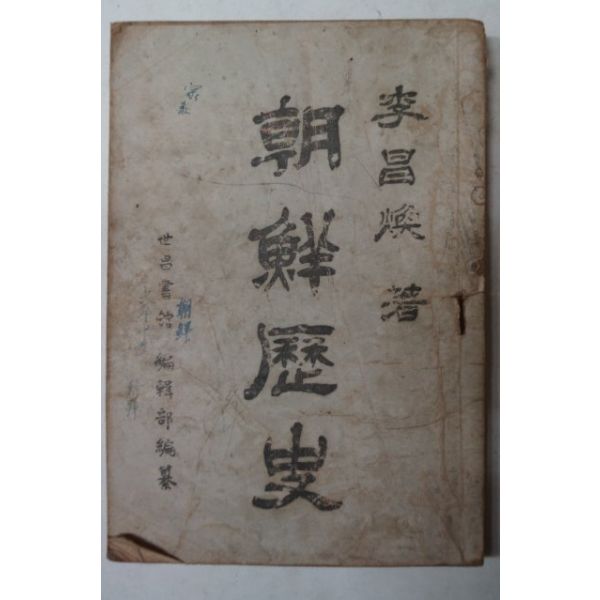 李昌煥 著
朝鮮歷史
世昌書館 編輯部編纂
朝鮮